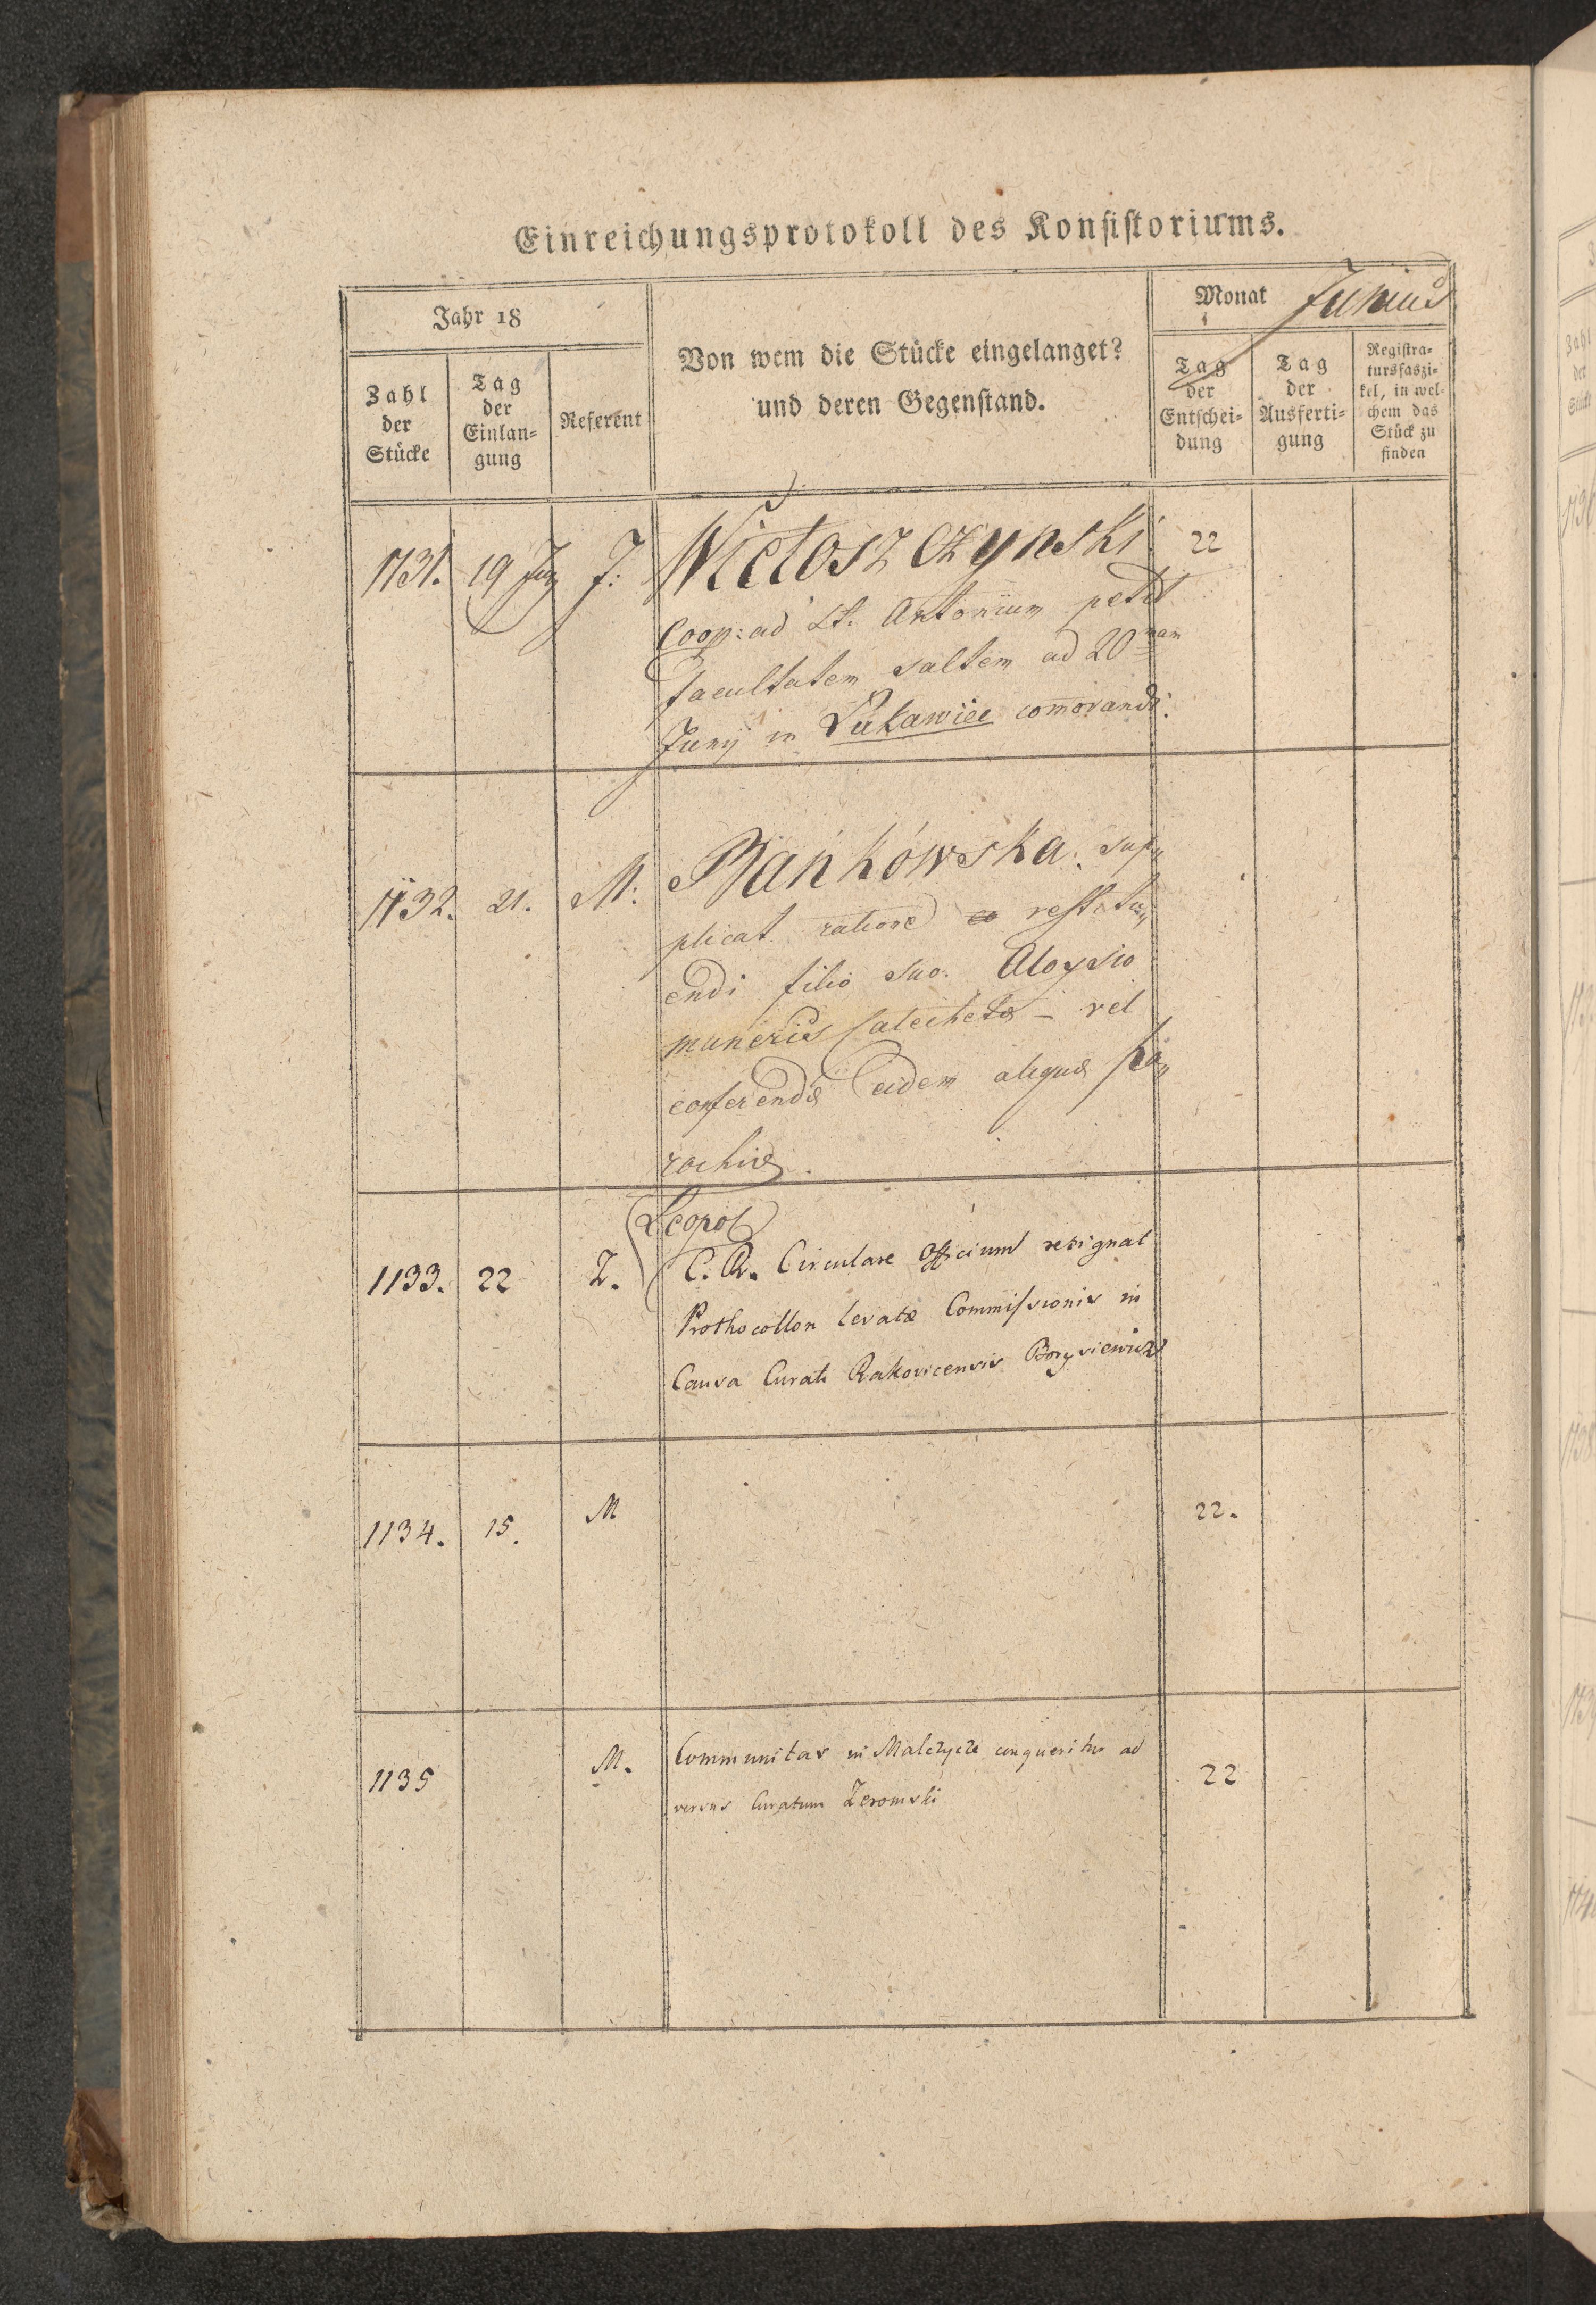 Einreichungsprotokoll des Konsistoriums.
Jahr 18
Monat Junius
Zahl der Stücke
Tag der Einlan=gung
Referent
Von wem die Stücke eingelanget?
und deren Gegenstand.
Tag der Entschei=dung
Tag der Ausferti=gung
Registra=tursfaszi=kel, in wel=chem das Stück zu finden
1131. 19 Juny J: Wietoszczynski 22
Coop: ad St. Antonium petit
facultatem saltem ad 20
Junij in Lukawiec comorandi.
1132. 21. M: Bańkowska: sup„
plicat ratione restitu„
endi filio suo Aloysio
muneris Catechetæ – vel
conferendæ eidem aliquæ Pa„
rochiæ.
Leopol
1133. 22 Z. C. R. Circulare Officium resignat
Prothocollon levatæ Commissionis in
Causa Curati Rakovicensis Borysiewicz
1134. 15. M 22.
1135 M. Communitas in Malczyce conqueritur ad
versus Curatum Zeromski 22